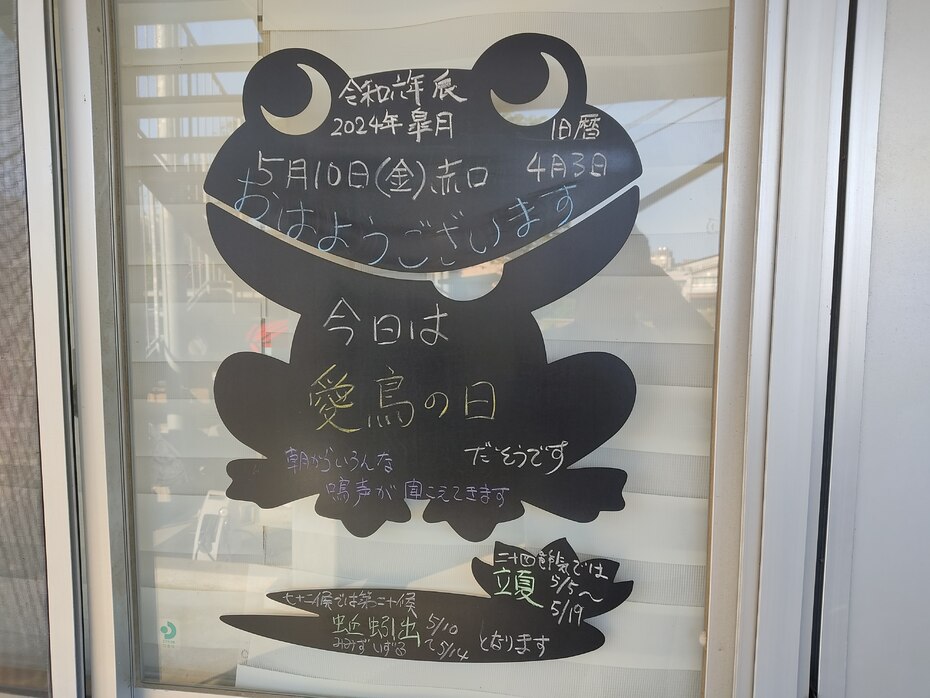 令和六年 辰
2024年 皐月
旧暦
5月10日(金)赤口
4月3日
おはようございます
今日は
愛鳥の日
だそうです
朝からいろんな
鳴声が聞こえてきます
二十四節気では
立夏 5/5〜
5/19
七十二候では第二十候
蚯蚓出 5/10
みみずいずる 〜5/14
となります